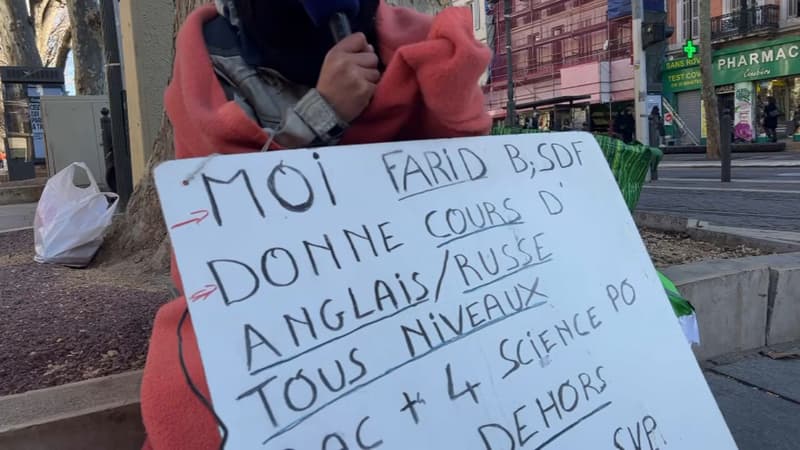 MOI FARID B, SDF
DONNE COURS D'
ANGLAIS/RUSSE
TOUS NIVEAUX
BAC + 4 SCIENCE PO
DEHORS
SVP
PHARMAC
SANS
TEST